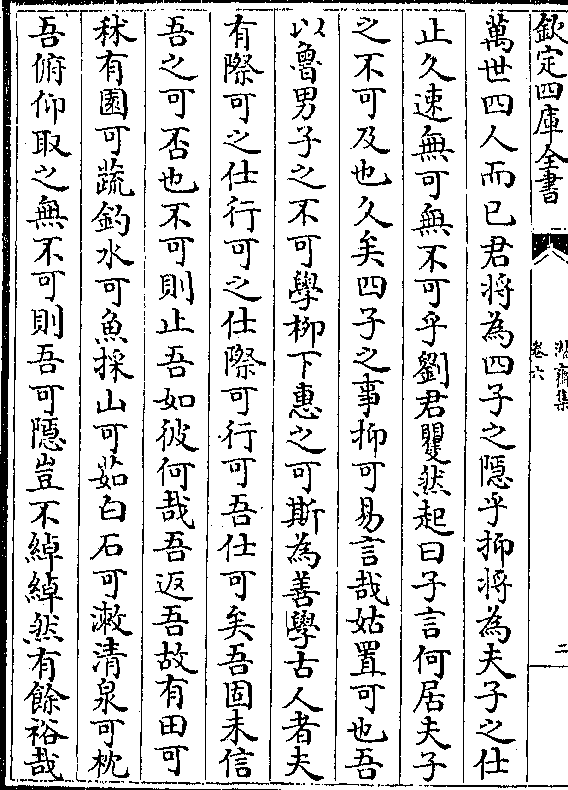 欽定四庫全書
卷六
二
萬世四人而已君將為四子之隱乎抑將為夫子之仕
止久速無可無不可乎劉君瞿然起曰子言何居夫子
之不可及也久矣四子之事抑可易言哉姑置可也吾
以魯男子之不可學柳下惠之可斯為善學古人者夫
有際可之仕行可之仕際可行可吾仕可矣吾固未信
吾之可否也不可則止吾如彼何哉吾返吾故有田可
秫有園可蔬釣水可魚採山可茹白石可漱清泉可枕
吾俯仰取之無不可則吾可隱豈不綽綽然有餘裕哉